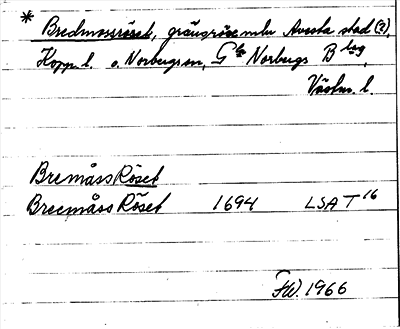 * Bredmossröset, gränsröse mln Avesta stad (?),
Kopp. l. o. Norbergs sn, Gla Norbergs Blag,
Västm. l.
Bremåss Röset
Breemåss Röset 1694 LSA T 16
FW. 1966